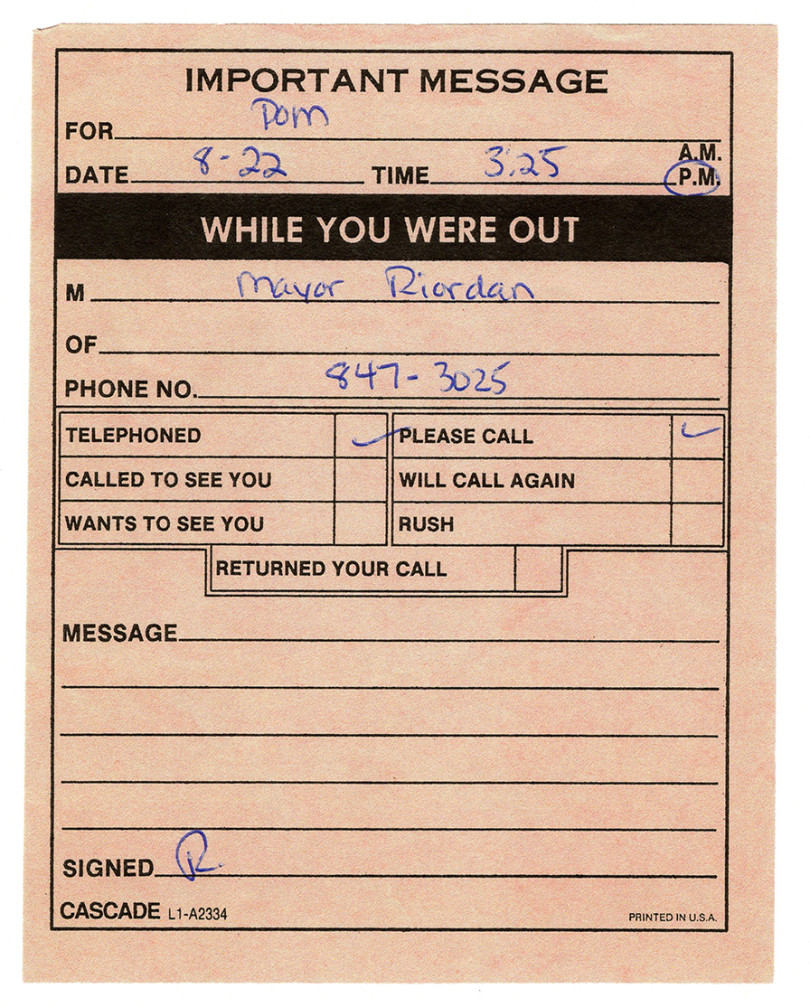 IMPORTANT MESSAGE
FOR Dom
DATE 8-22 TIME 3:25 A.M.
P.M.
WHILE YOU WERE OUT
M Mayor Riordan
OF
PHONE NO. 847-3025
TELEPHONED ✓ PLEASE CALL ✓
CALLED TO SEE YOU WILL CALL AGAIN
WANTS TO SEE YOU RUSH
RETURNED YOUR CALL
MESSAGE
SIGNED R.
CASCADE L1-A2334 PRINTED IN U.S.A.